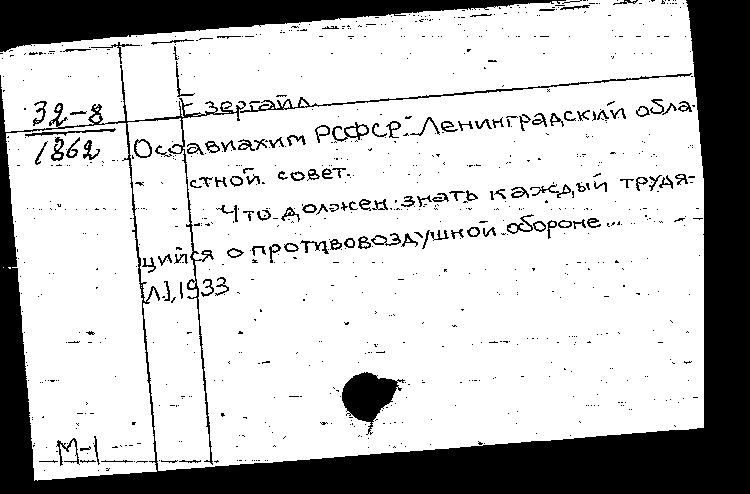 32-8
1862
Езергайл.
Осоавиахим РСФСР. Ленинградский обла-
стной совет.
Что должен знать каждый трудя-
щийся о противовоздушной обороне...
[Л.], 1933
М-1